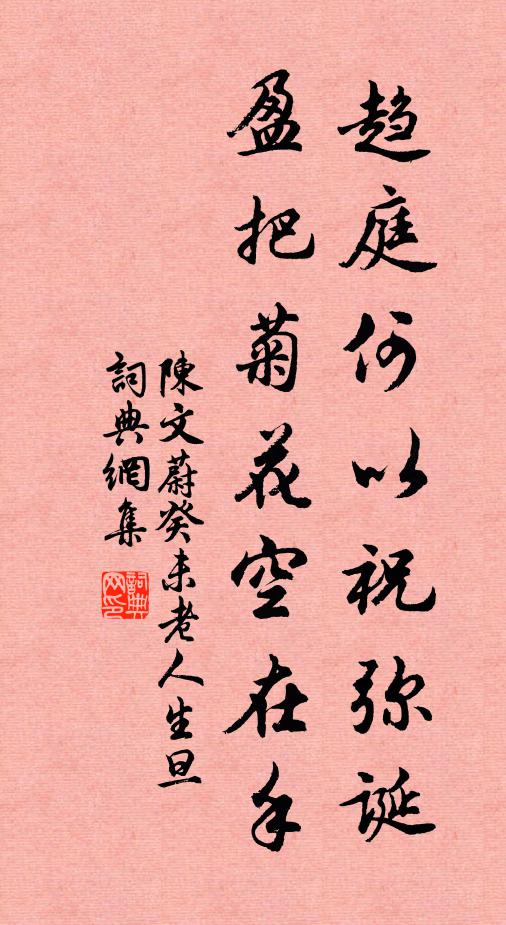 趋庭何以祝弥诞
盈把菊花空在手
陳文蔚癸未老人生旦
詞典網集
詞典網印